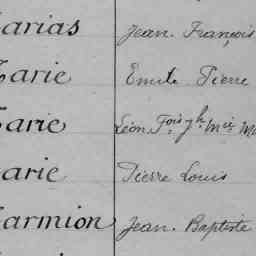 arias Jean François
arie Emile Pierre
arie Léon Fois Jh Mie
arie Pierre Louis
armion Jean Baptiste